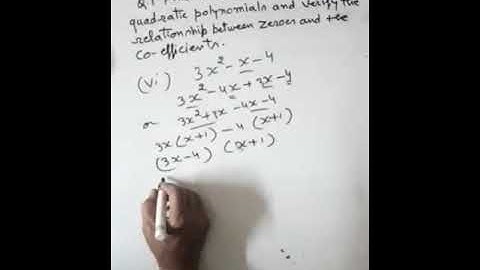 quadratic polynomials and verify the
relationship between zeroes and the
co-efficients.
(vi) 3x² - x - 4
3x² - 4x + 3x - 4
or 3x² + 3x - 4x - 4
3x (x+1) - 4 (x+1)
(3x - 4) (x+1)